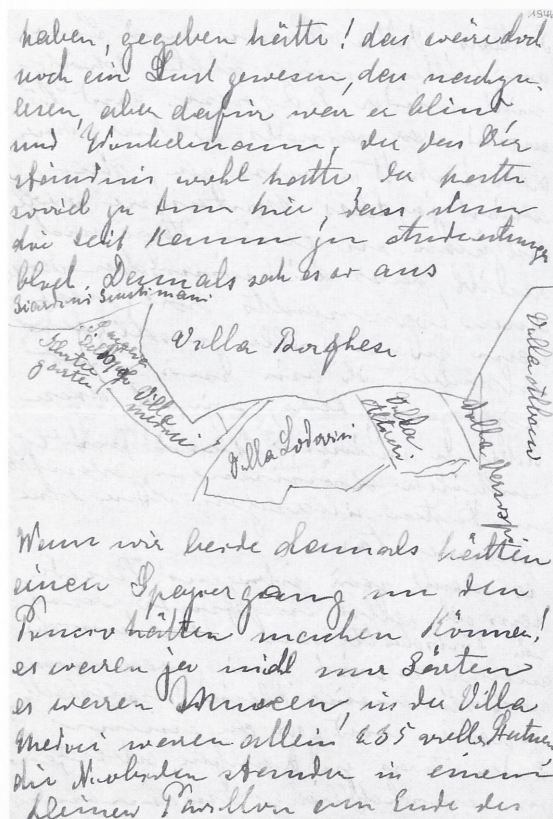 184
haben, gegeben hätte! das wäre doch
noch ein Lust gewesen, das nachzu-
lesen, aber dafür war er blind
und Winkelmann, der das Ver
ständnis wohl hatte, der hatte
soviel zu tun hier, dass ihm
die Zeit kaum zu Andeutungen
blieb. Damals sah es so aus
Giardini
Villa Borghese
Kloster
Garten
Villa
Medici
Villa Lodovisi
Villa
Villa
Villa Albani
Wenn wir beide damals hätten
einen Spazergang um den
hätten machen können!
es waren ja nicht nur Gärten
es waren Museen, in der Villa
Medici waren allein 235 Statuen
die Niobiden standen in einem
kleinen Pavillon am Ende des